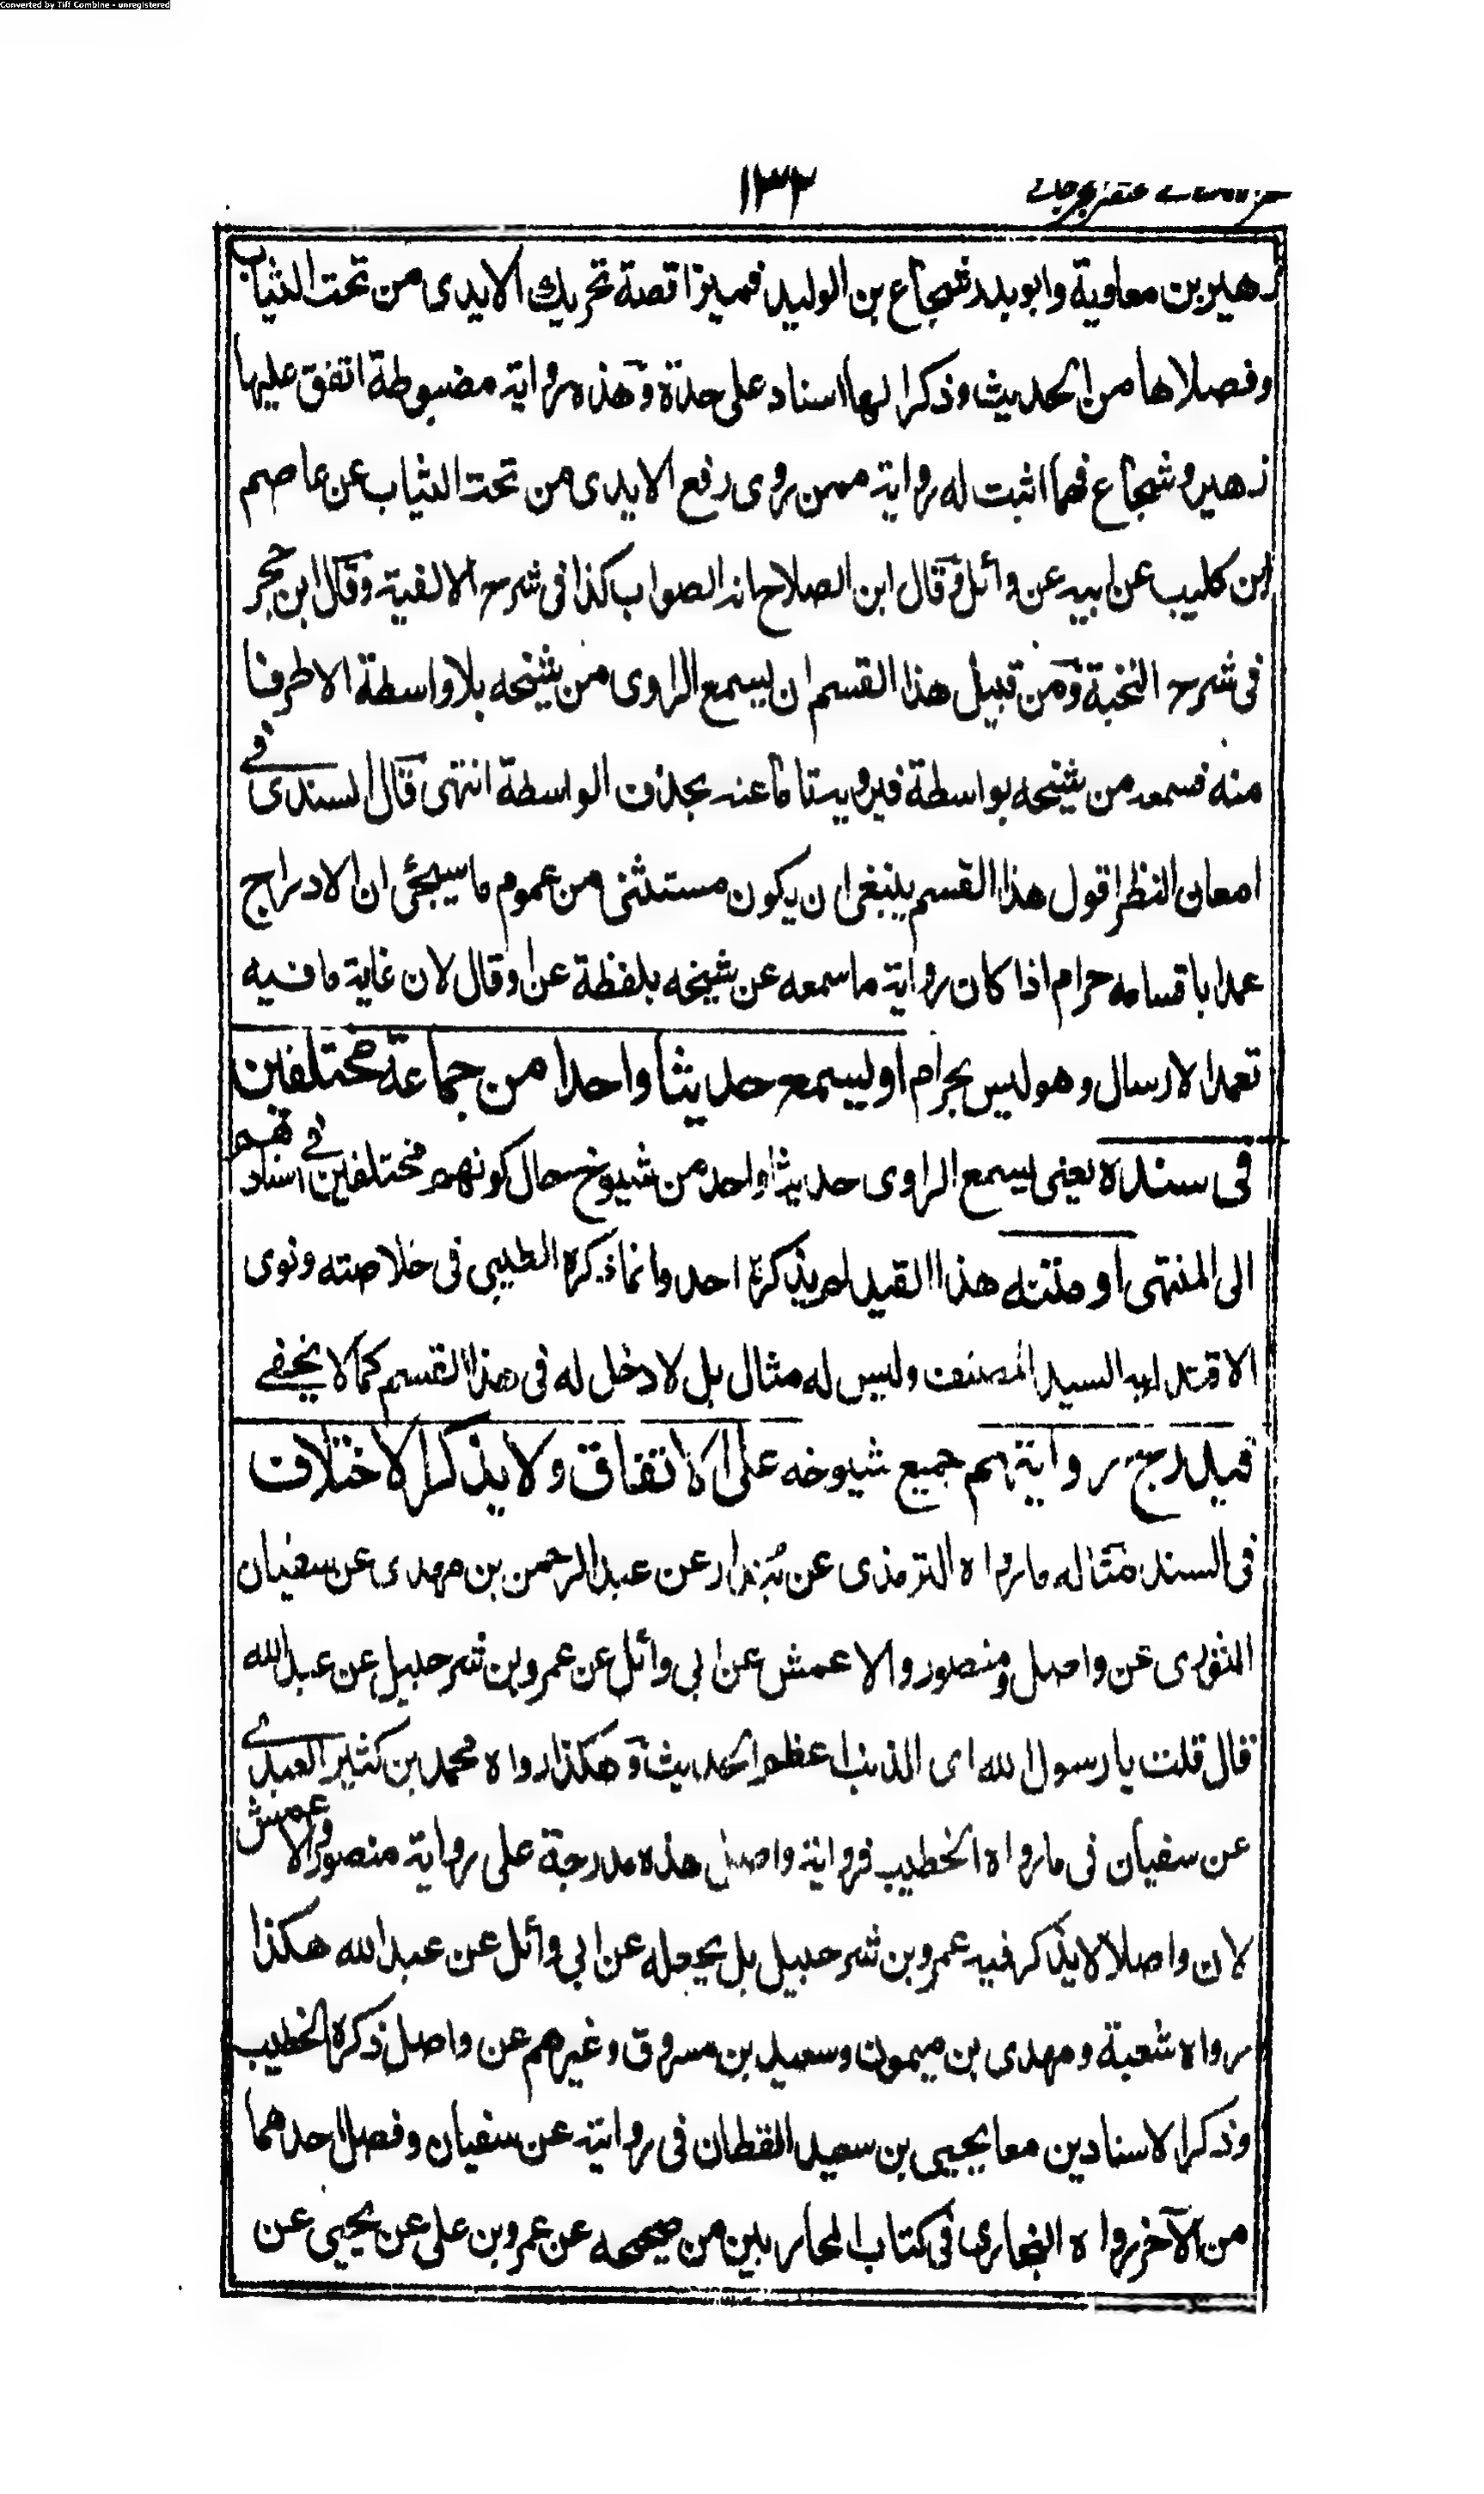 Converted by Tiff Combine - unregistered
۱۳۲
زهير بن معاوية وابو بدر شجاع بن الوليد فميزا قصة تحريك الايدى من تحت الثياب
وفصلاها من الحديث وذكرا لها اسناد على حدة وهذه رواية مضبوطة اتفق عليها
زهير وشجاع فهما اثبت له رواية ممن روى رفع الايدى من تحت الثياب عن عاصم
ابن كليب عن ابيه عن وائل وقال ابن الصلاح انه الصواب كذا فى شرح الالفية وقال ابن حجر
فى شرح النخبة ومن قبيل هذا القسم ان يسمع الراوى من شيخه بلا واسطة الا طرفا
منه فسمعه من شيخه بواسطة فيرويه تاما عنه بحذف الواسطة انتهى قال السندى فى
امعان النظر اقول هذا القسم ينبغى ان يكون مستثنى من عموم ما سيجئ ان الادراج
عمدا باقسامه حرام اذا كان رواية ما سمعه عن شيخه بلفظة عن او قال لان غاية ما فيه
تعمد الارسال وهو ليس بحرام او يسمع حديثا واحدا من جماعة مختلفين
فى سنده يعنى يسمع الراوى حديثا واحد من شيوخ حال كونهم مختلفين فى اسنادهم
الى المنتهى او متنه هذا القيد لم يذكره احد وانما ذكره الطيبى فى خلاصته ونوى
الاقتداء به السيد المصنف وليس له مثال بل لا دخل له فى هذا القسم كما لا يخفے
فيدرج روايتهم جميع شيوخه على الاتفاق ولا يذكر الاختلاف
فى السند مثاله ما رواه الترمذى عن بُندار عن عبد الرحمن بن مهدى عن سفيان
الثورى عن واصل ومنصور والاعمش عن ابى وائل عن عمرو بن شرحبيل عن عبد الله
قال قلت يا رسول الله اى الذنب اعظم الحديث وهكذا رواه محمد بن كثير العبدے
عن سفيان فى ما رواه الخطيب فرواية واصل هذه مدرجة على رواية منصور والاعمش
لان واصلا لا يذكر فيه عمرو بن شرحبيل بل يجعله عن ابى وائل عن عبد الله هكذا
رواه شعبة ومهدى بن ميمون وسعيد بن مسروق وغيرهم عن واصل ذكره الخطيب
وذكر الاسنادين معا يحيى بن سعيد القطان فى روايته عن سفيان وفصل احدهما
من الآخر رواه البخارى فى كتاب المحاربين من صحيحه عن عمرو بن على عن يحيى عن